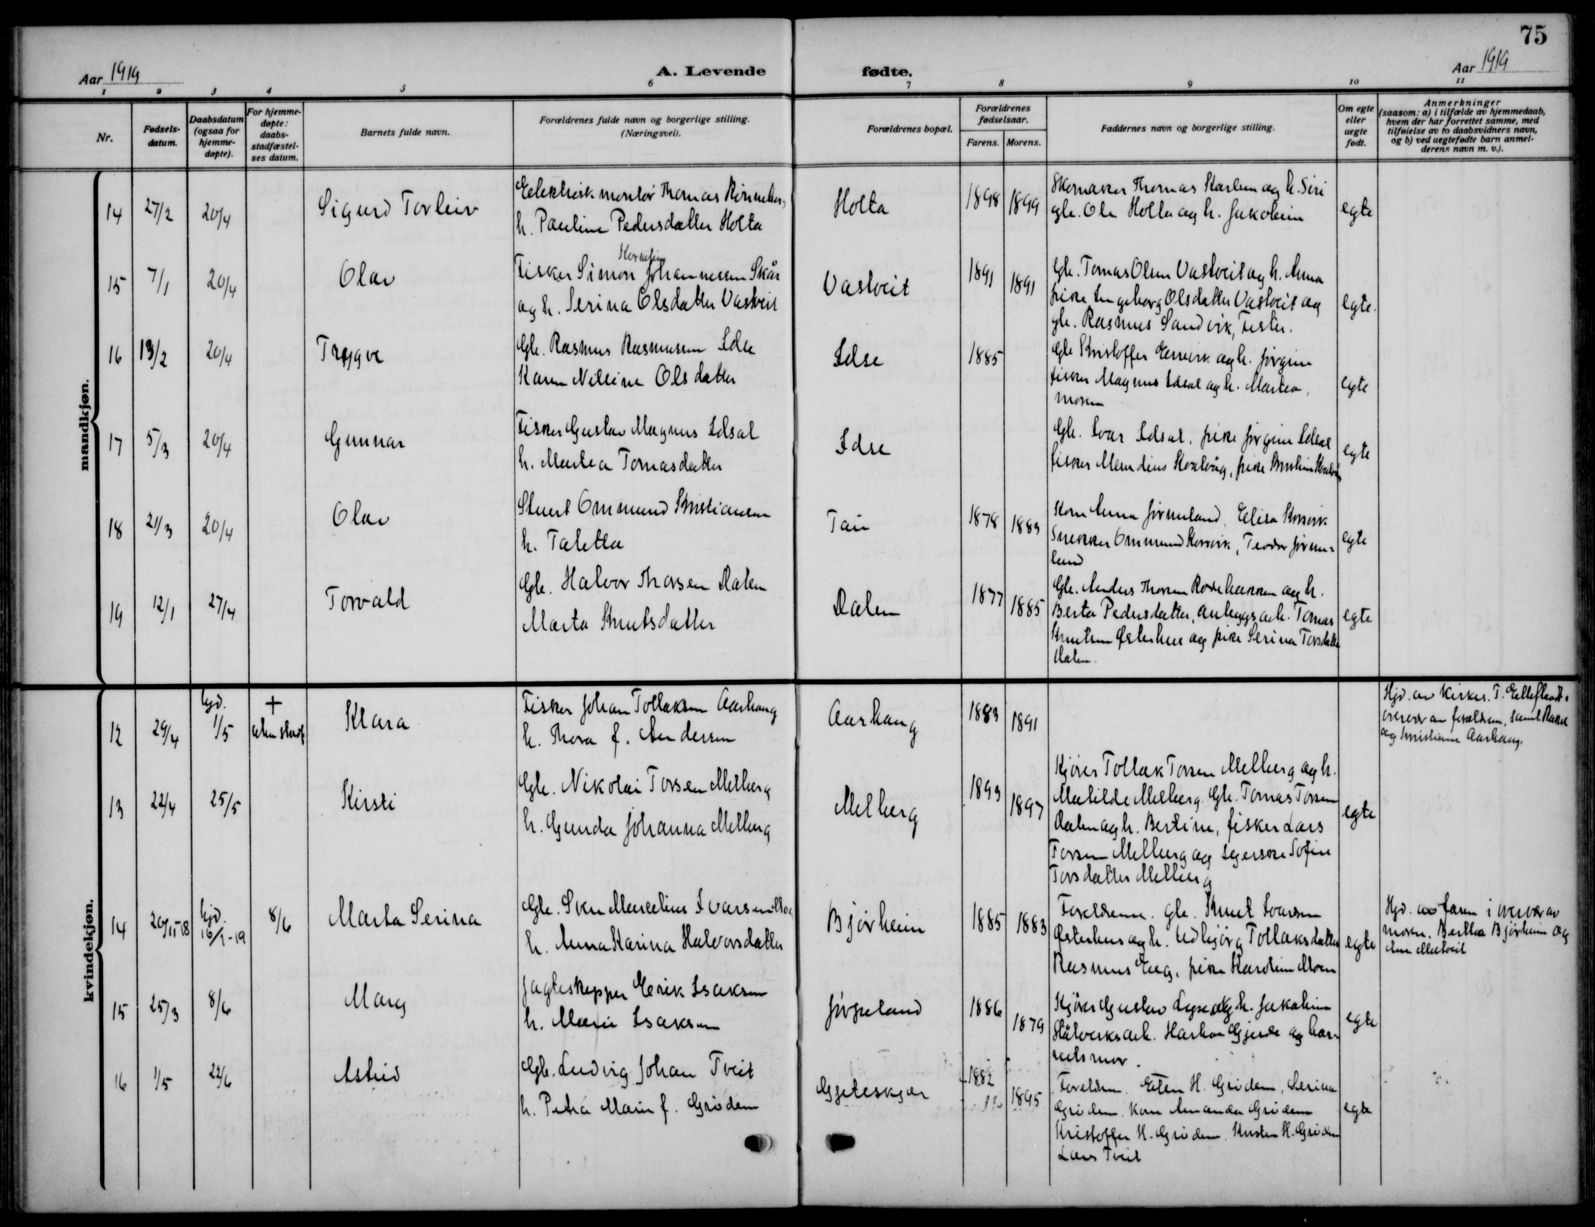 75
Aar 1919
A. Levende
fødte.
Aar 1919
1 2 3 4 5 6 7 8 9 10 11
Nr.
Fødsels-
datum.
Daabsdatum
(ogsaa for
hjemme-
døpte).
For hjemme-
døpte:
daabs-
stadfæstel-
ses datum.
Barnets fulde navn.
Forældrenes fulde navn og borgerlige stilling.
(Næringsvei).
Forældrenes bopæl.
Forældrenes
fødselsaar.
Farens. Morens.
Faddernes navn og borgerlige stilling.
Om egte
eller
uegte
født.
Anmerkninger
(saasom: a) i tilfælde av hjemmedaab,
hvem der har forrettet samme, med
tilføielse av to daabsvidners navn,
og b) ved uegtefødte barn anmel-
derens navn m. v.).
mandkjøn.
14 27/2 20/4 Sigurd Torleiv
Elektrisk montør Thomas
h. Pauline Pedersdatter Holta
Holta 1898 1899
Skomaker Thomas Karlsen og h. Siri
gb. Ole Holta og h. Jakobine
egte
15 7/1 20/4 Olav
Kornelius
Fisker Simon Johannessen Skår
og h. Serina Olsdatter Vastveit
Vastveit 1891 1891
Gb. Tomas Olsen Vastveit og h. Anna
pike Ingeborg Olsdatter Vastveit og
gb. Rasmus Sandvik, Fister.
egte.
16 13/2 20/4 Trygve
Gb. Rasmus Rasmussen Idse
Karen Nilsine Olsdatter
Idse 1885
Gb Kristoffer og h. Jørgine
fisker Magnus Idsal og h. Martea,
moren
egte
17 5/3 20/4 Gunnar
Fisker Gustav Magnus Idsal
h. Martea Tomasdatter
Idse
Gb. Ivar Idsal, pike Jørgine Idsal
fisker
egte
18 21/3 20/4 Olav
Stuert Ommund Kristiansen
h. Taletta
Tau 1878 1883
Kone Anna Jørmeland, Elisa
Snekker Ommund, Teodor Jørme-
land
egte
19 12/1 27/4 Torvald
Gb. Halvor Thorsen Dalen
Marta Knutsdatter
Dalen 1877 1885
Gb. Anders Thorsen og h.
Berta Pedersdatter, anlægsarb. Tomas
Knutsen Østerhus og pike Serina Torsdatter
Dalen.
egte
kvindekjøn.
12 29/4 hjd. 1/5 +
Klara
Fisker Johan Tollaksen Aarhaug
h. Thora f. Andersen
Aarhaug 1883 1891
Hjd. av kirkes. T.
overvær av forældrene, samt
og Kristiane Aarhaug.
13 22/4 25/5 Kirsti
Gb. Nikolai Torsen Melberg
h. Gunda Johanna Melberg
Melberg 1893 1897
Kjører Tollak Torsen Melberg og h.
Matilde Melberg. Gb. Tomas Torsen
Dalen og h. Bertine, fisker Lars
Torsen Melberg og Sofie
Torsdatter Melberg
egte
14 20/11-18 hjd. 16/1-19 8/6 Marta Serina
Gb. Sven Marcelius Ivarsen
h. Anna Karina Halvorsdatter
Bjørheim 1885 1883
Foreldrene. Gb. Knut Ivarsen
Østerhus og h. Tollaksdatter
Rasmus, pike Karoline Moen
egte
Hjd. av faren i overvær av
moren, Berthe Bjørheim og
15 25/3 8/6 Mary
Jagtskipper Erik Isaksen
h. Marie Isaksen
Jørpeland 1886 1879
Kjører Gustav og h. Jakobine
Stålverksarb. Haakon Gjerde og bar-
nets mor.
egte
16 1/5 22/6 Astrid
Gb. Ludvig Johan Tveit
h. Petra Marie f. Grødem
Gjeteskjær 1882 1895
Foreldrene. H. Grødem, Serina
Grødem, Kone Amanda Grødem
Kristoffer H. Grødem. H. Grødem
Lars Tveit
egte